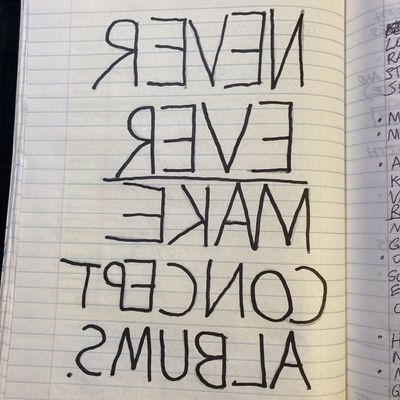 NEVER
EVER
MAKE
CONCEPT
ALBUMS.